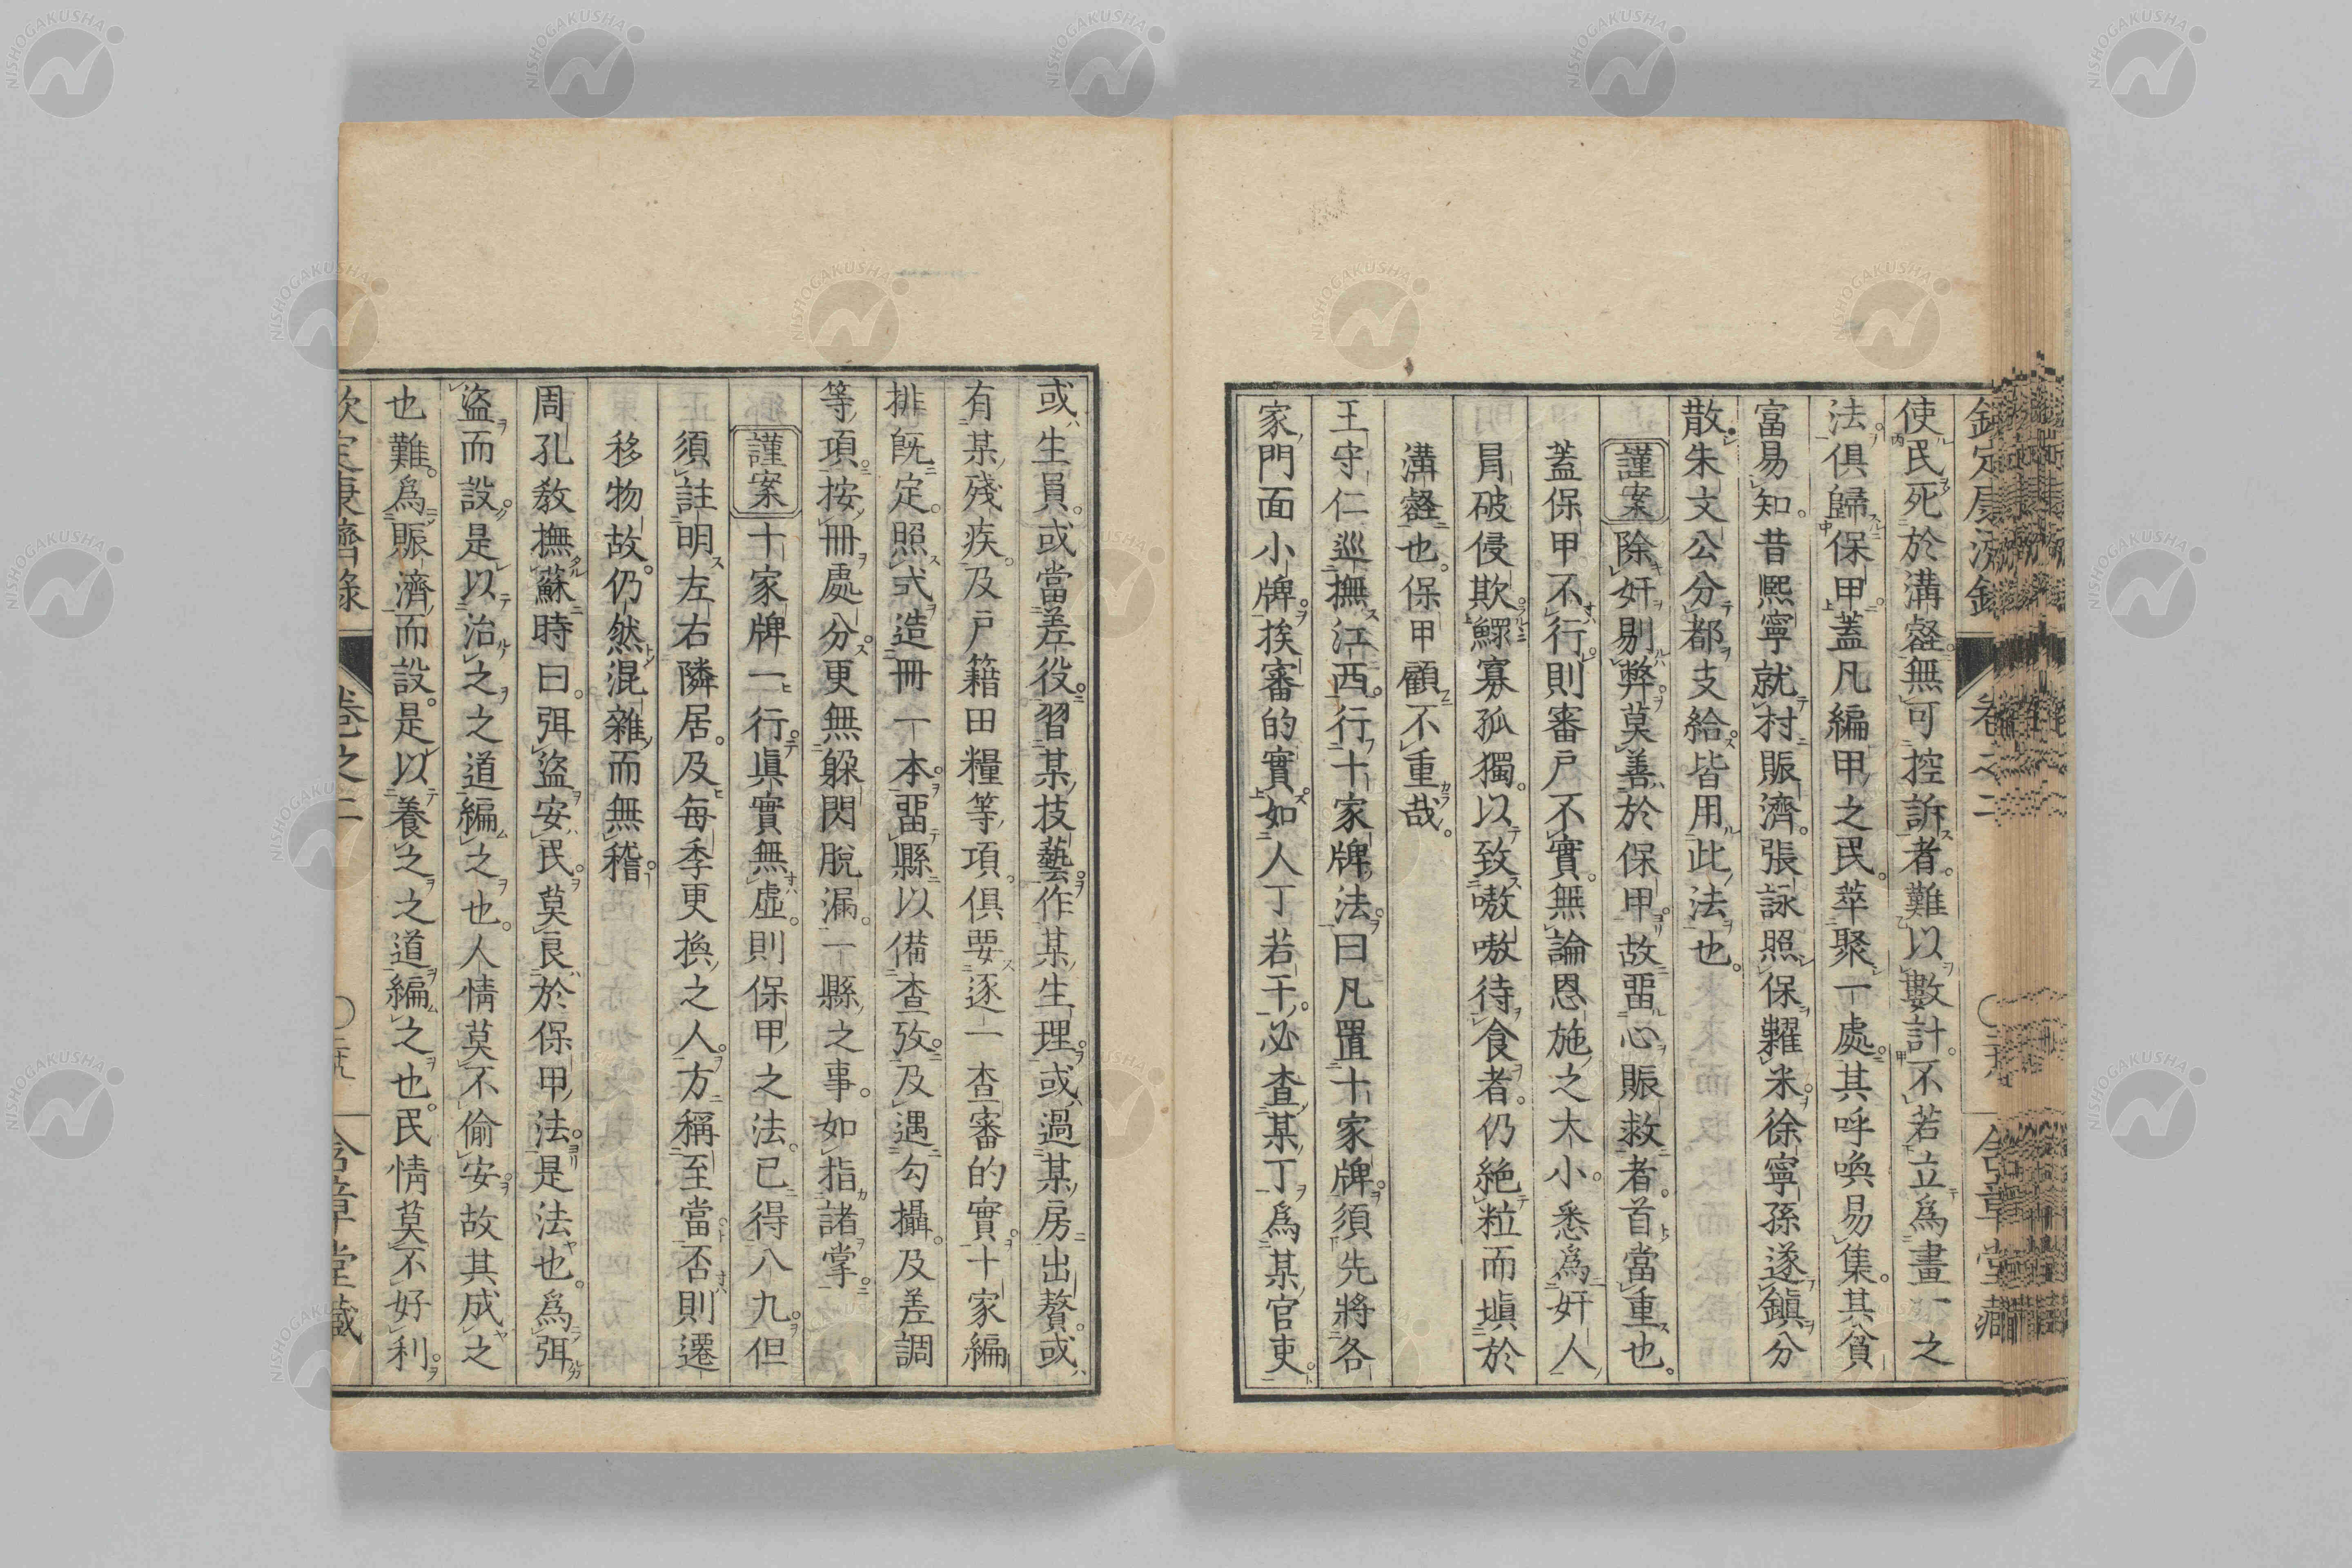 使民死於溝壑無可控訴者。難以數計。不若立爲畫一之
法。俱歸保甲。蓋凡編甲之民。萃聚一處。其呼喚易集。其貧
富易知。昔熙寧就村賑濟。張詠照保糶米。徐寧孫遂鎮分
散。朱文公分都支給。皆用此法也。
謹案除奸剔弊。莫善於保甲。故畱心賑救者。首當重也。
蓋保甲不行。則審戶不實。無論恩施之大小。悉爲奸人
冐破侵欺。鰥寡孤獨。以致嗷嗷待食者。仍絶粒而塡於
溝壑也。保甲顧不重哉。
王守仁巡撫江西。行十家牌法。曰凡置十家牌。須先將各
家門面小牌。挨審的實。如人丁若干。必查某丁爲某官吏。
或生員。或當差役。習某技藝。作某生理。或過某房出贅。或
有某殘疾。及戶籍田糧等項。俱要逐一查審的實。十家編
排既定。照式造冊一本。畱縣以備查攷。及遇勾攝。及差調
等項。按冊處分。更無躱閃脫漏。一縣之事。如指諸掌。
謹案十家牌一行。眞實無虛。則保甲之法。已得八九。但
須註明左右隣居。及每季更換之人。方稱至當。否則遷
移物故。仍然混雜而無稽。
周孔敎撫蘇時曰。弭盜安民。莫良於保甲法。是法也。爲弭
盜而設。是以治之之道編之也。人情莫不偷安。故其成之
也難。爲賑濟而設。是以養之之道編之也。民情莫不好利。
欽定康濟錄 卷之二 〇 含章堂藏
NISHOGAKUSHA